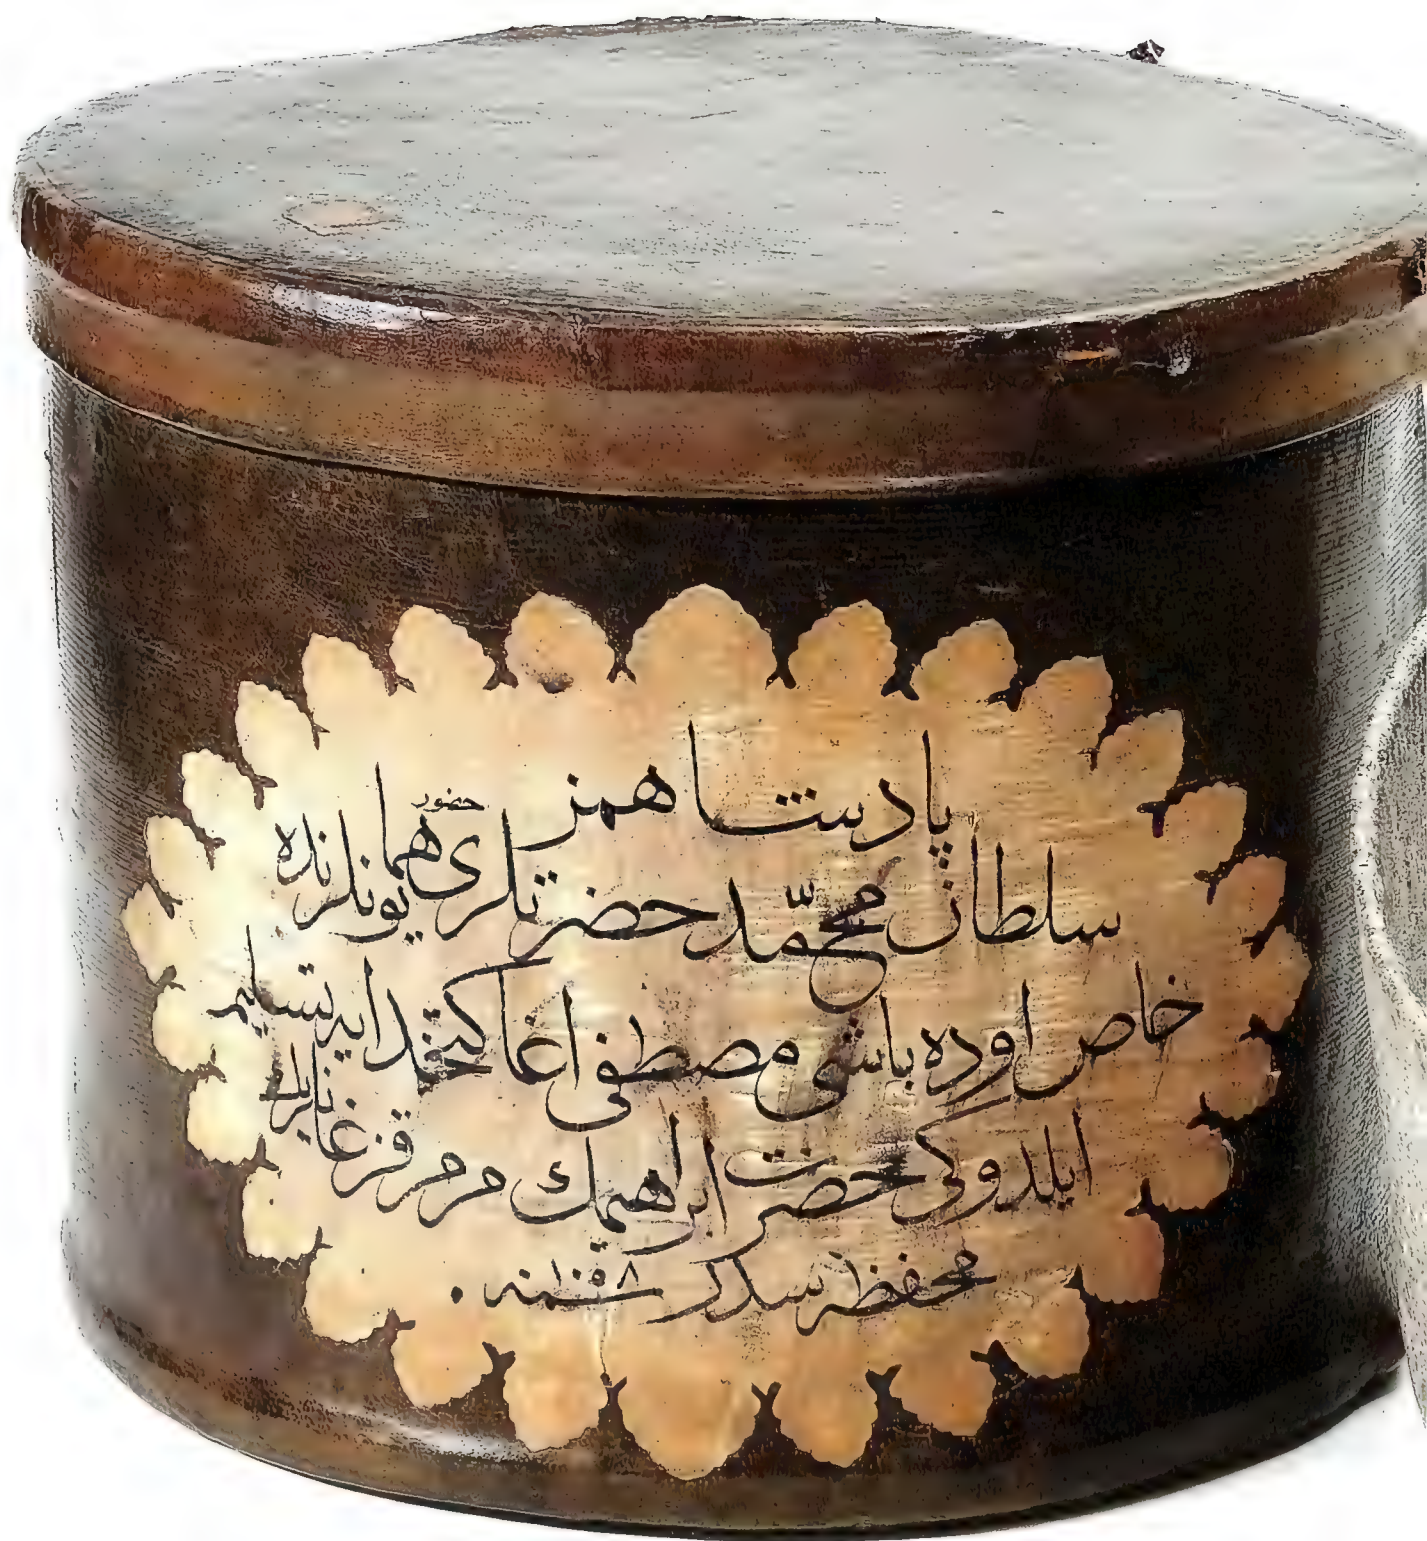 پادشاهمز
سلطان محمّد حضرتلری حضور همایونلرنده
خاص اوده باشی مصطفی اغا کتخدایه تسلیم
ایلدوکی حضرت ابراهیمك مرمر قزغانلرینك
محفظه سدر سنه ١٠٥٨